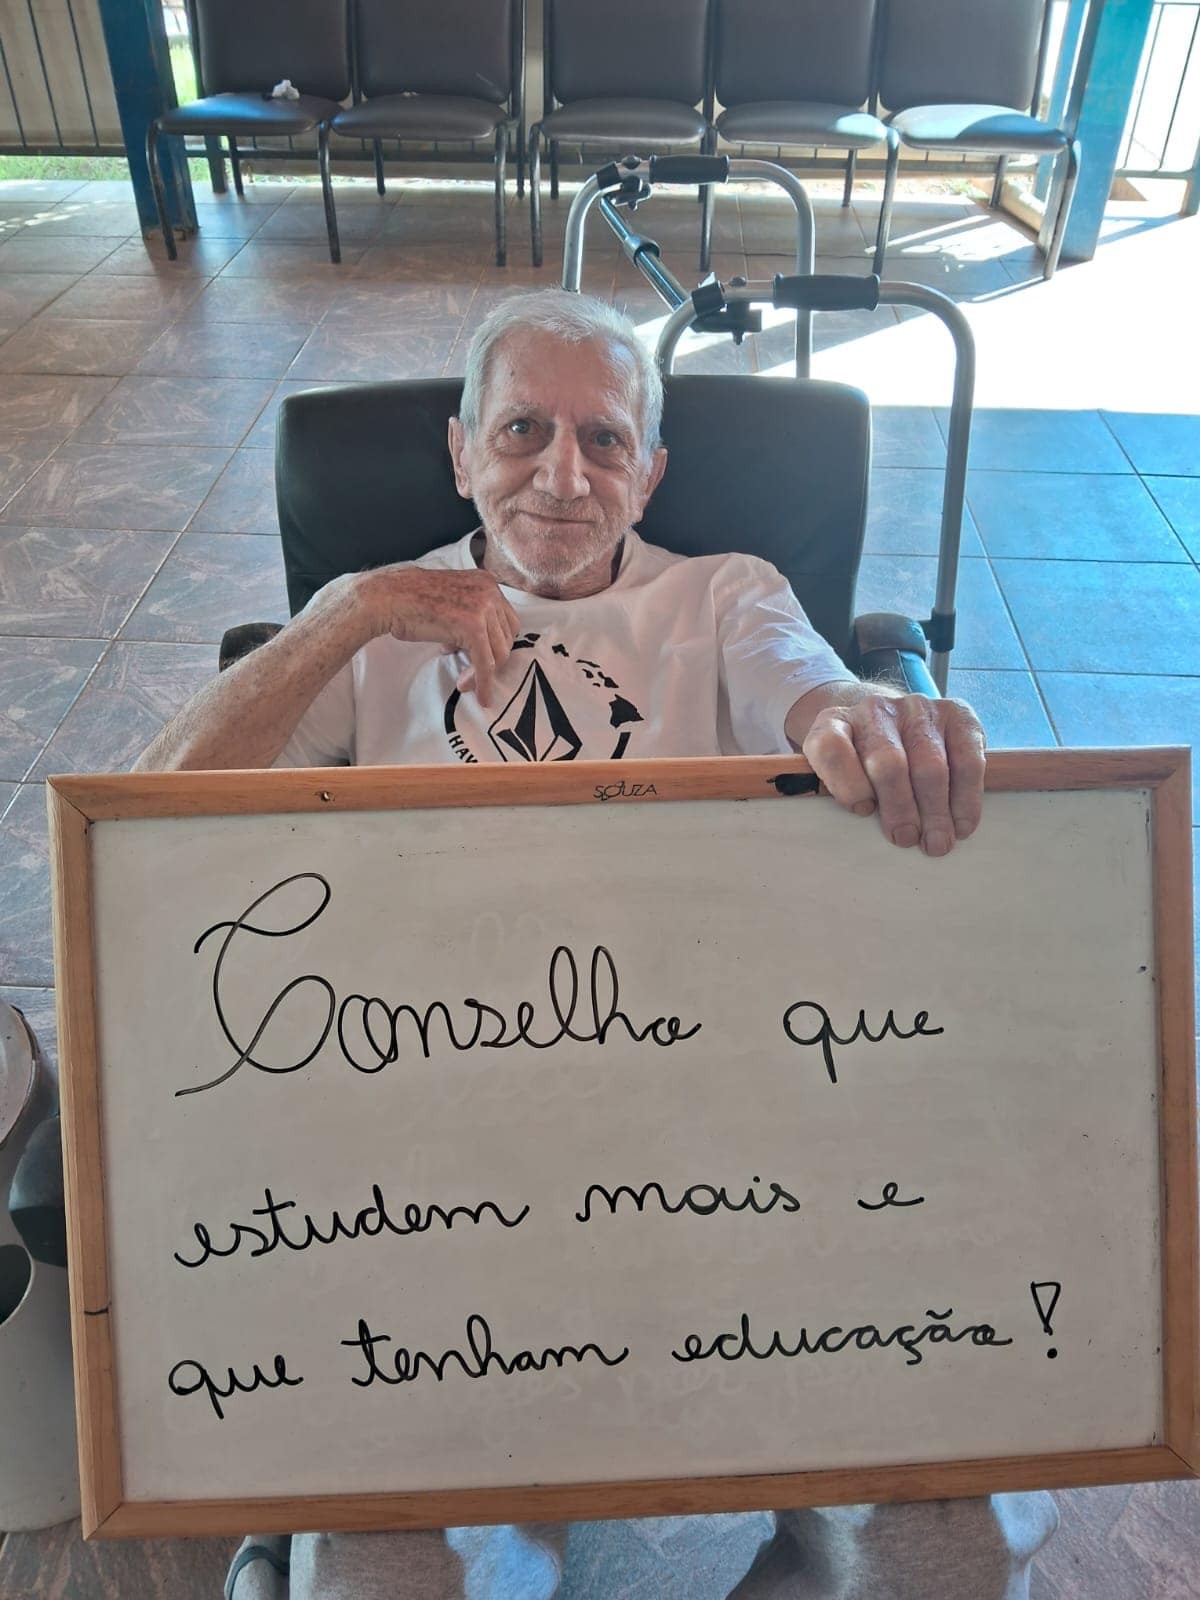 HAV
SOUZA
Conselho que
estudem mais e
que tenham educação!